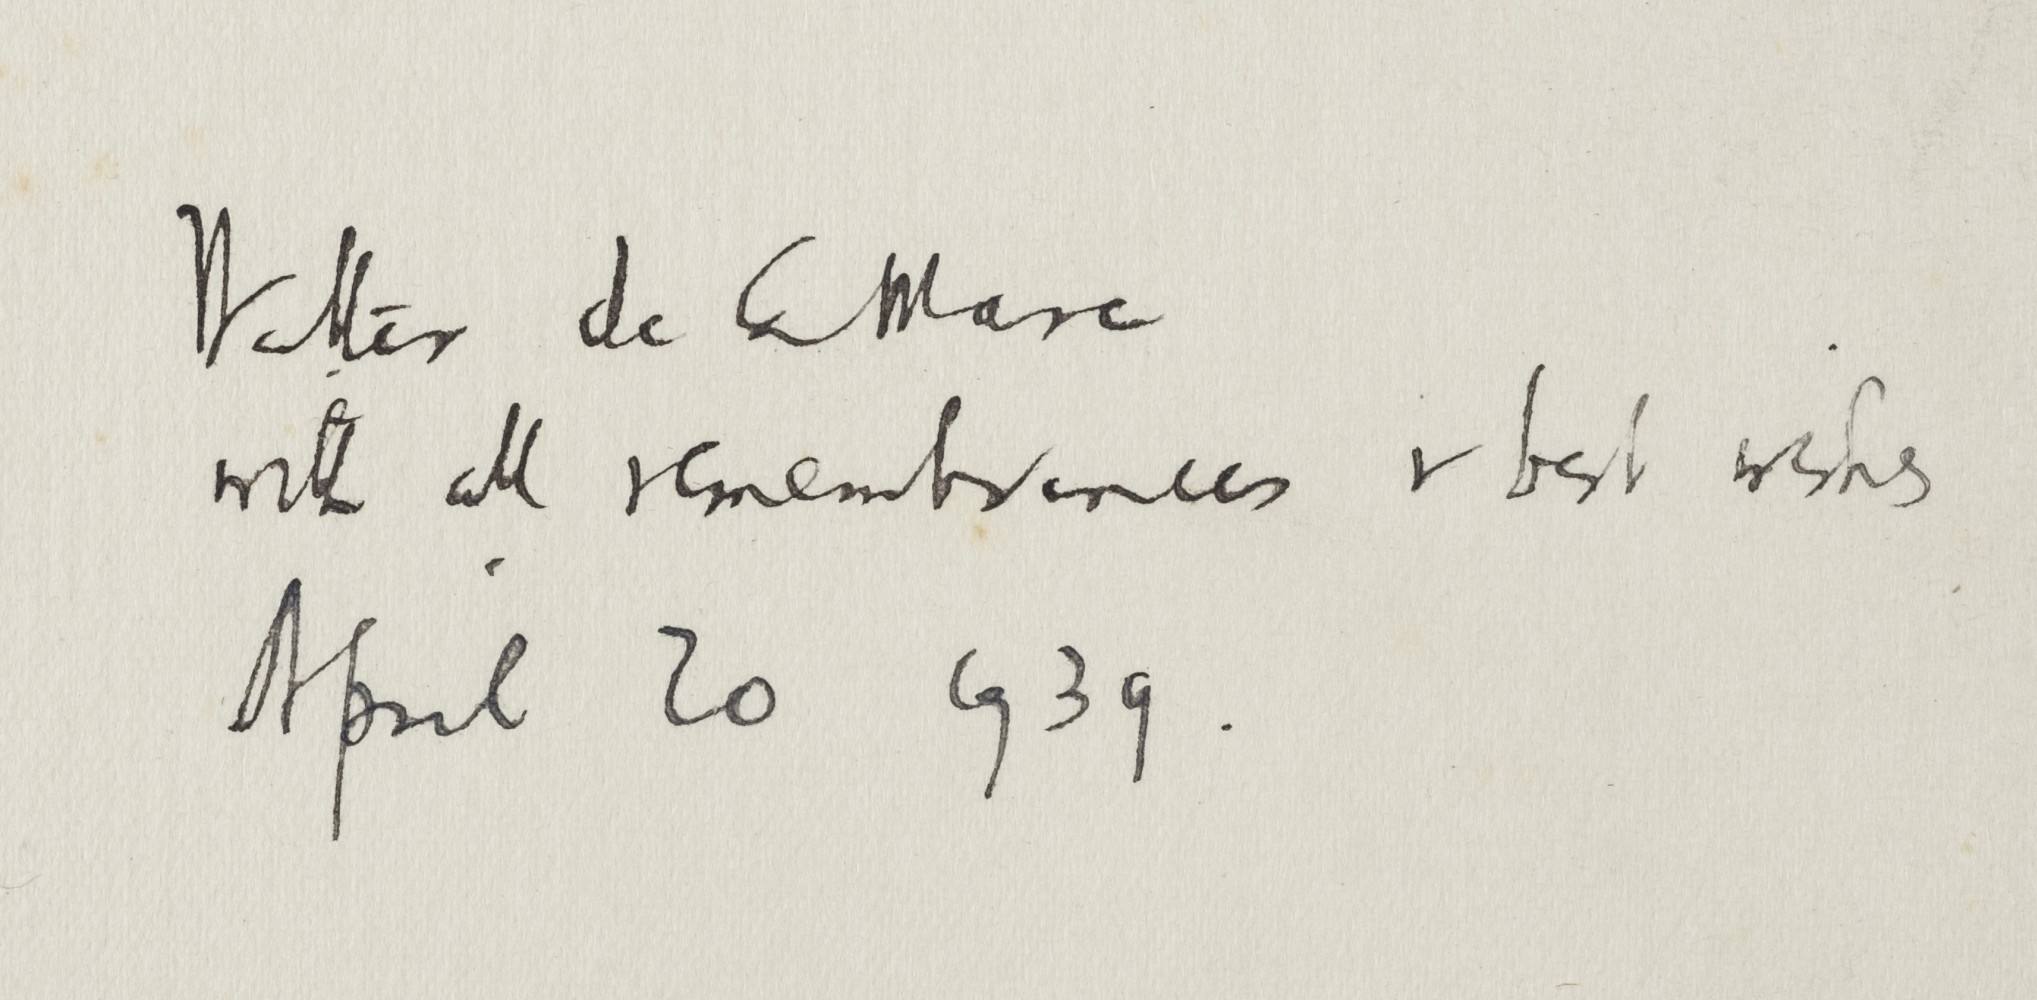 Walter de la Mare
with all remembrances & best wishes
April 20 1939.